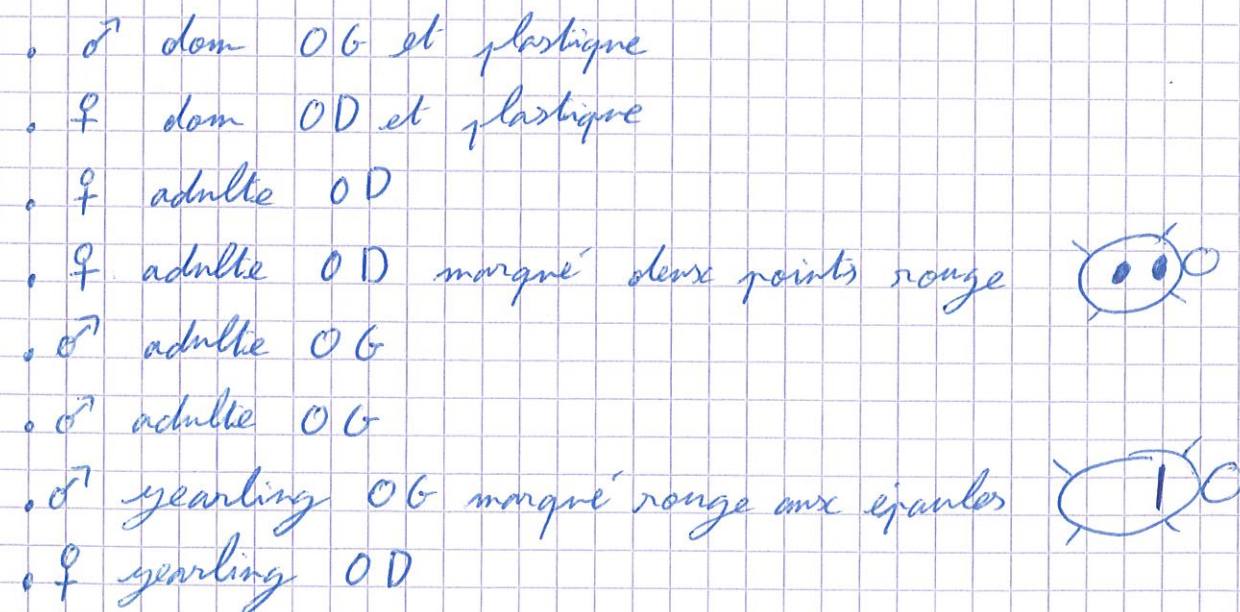 . ♂ dom OG et plastique
. ♀ dom OD et plastique
. ♀ adulte OD
. ♀ adulte OD marqué deux points rouge
. ♂ adulte OG
. ♂ adulte OG
. ♂ yearling OG marqué rouge aux épaules
. ♀ yearling OD